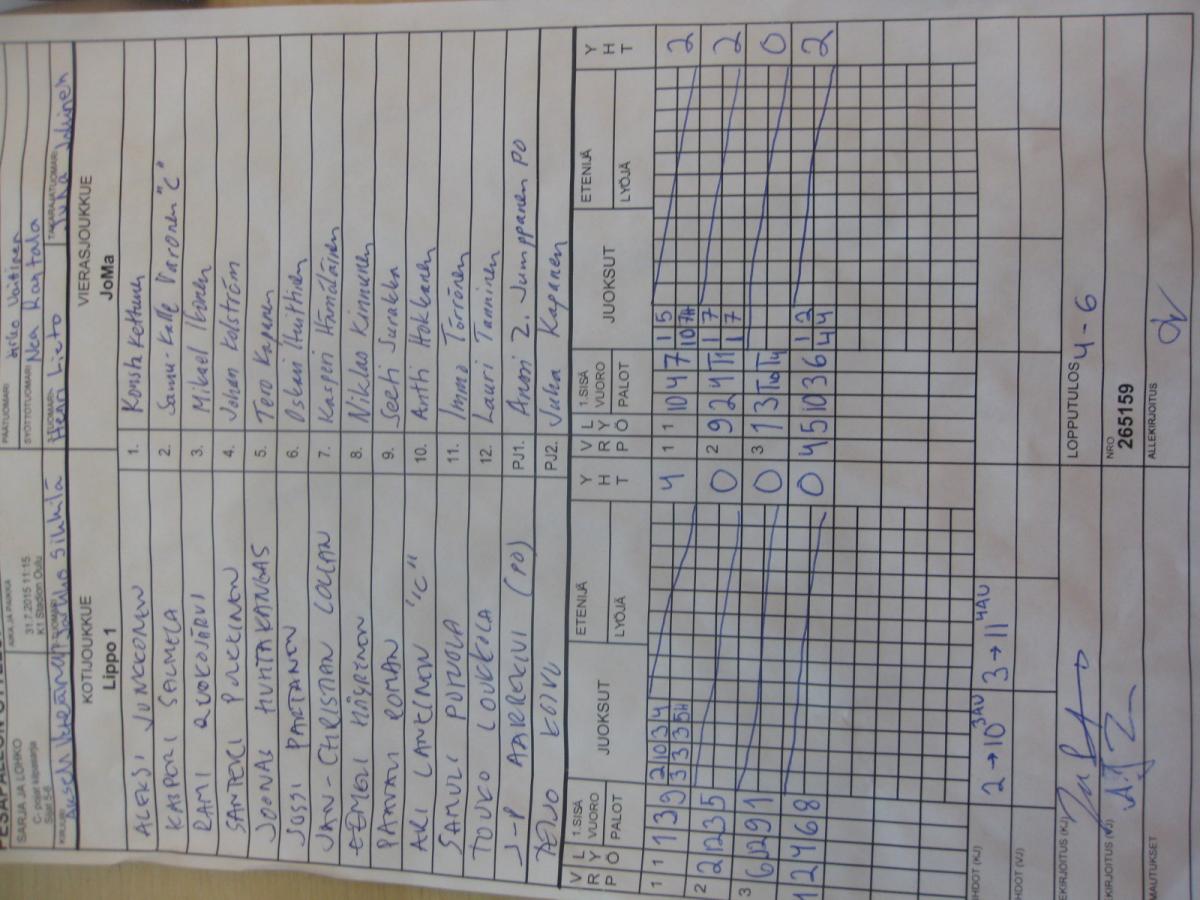 SARJA JA LOHKO
C-pojat välisarja
Sijat 5-8
AIKA JA PAIKKA
31.7.2015 11:15
K1 Stadion Oulu
PÄÄTUOMARI
SYÖTTÖTUOMARI Nea Rantala
Henri Lieto
TAKARAJATUOMARI Juha Jokinen
KOTIJOUKKUE
Lippo 1
VIERASJOUKKUE
JoMa
ALEKSI JUNKKONEN 1. Konsta Kettunen
KASPERI SALMELA 2. Samu-Kalle Varonen "C"
RAMI RUOKOJÄRVI 3. Mikael Ikonen
SANTERI PULKKINEN 4. Johan Kolström
JOONAS HUHTAKANGAS 5. Tero Kapanen
JUSSI PARTANEN 6. Oskari Huittinen
JAN-CHRISTIAN 7. Kasperi Hämäläinen
EEMELI HÄYRINEN 8. Niklas Kinnunen
PAAVALI ROMAN 9. Seeti Jurakka
AKI LANTINEN "C" 10. Anthi Hokkanen
SAMULI 11. Immo Törrönen
TOUKO LOUKKOLA 12. Lauri Tanninen
J-P AARREKIVI (PO) PJ1. Anssi 2. Jumppanen PO
KOIVU PJ2. Juha Kapanen
VRP LYÖ 1.SISÄ VUORO PALOT JUOKSUT ETENIJÄ LYÖJÄ YHT VRP LYÖ 1.SISÄ VUORO PALOT JUOKSUT ETENIJÄ LYÖJÄ YHT
1 1 1 3 9 2 10 3 4 4 1 1 10 4 7 1 5 2
3 3 3 5H 10 7H
2 2 12 3 5 0 2 9 2 4 11 1 7 2
1 7
3 6 12 9 1 0 3 1 3 0
12 4 6 8 0 4 5 10 3 6 1 2 2
4 4
HDOT (KJ) 2→10 3AU 3→11 4AU
HDOT (VJ)
EKIRJOITUS (KJ) LOPPUTULOS 4 - 6
KIRJOITUS (VJ) NRO
265159
MAUTUKSET ALLEKIRJOITUS